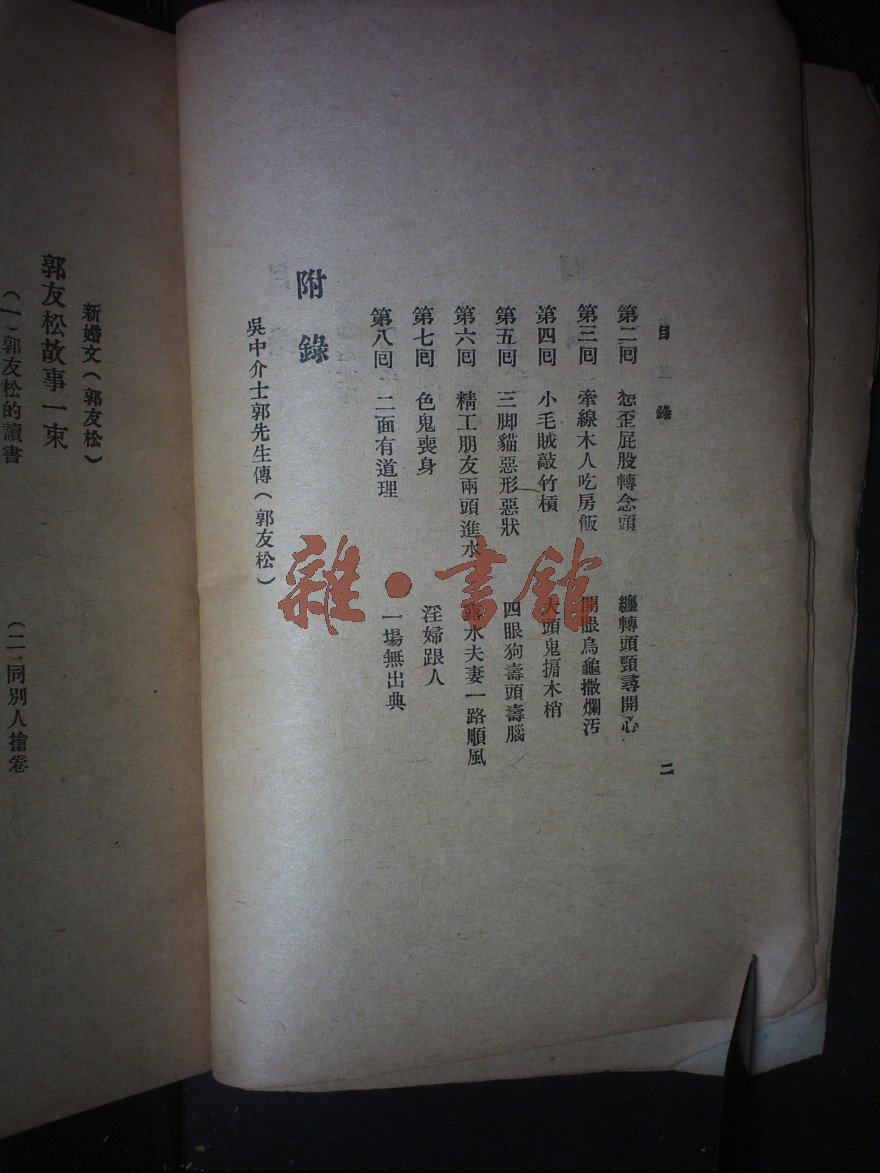 目錄
二
第二囘 歪屁股轉念頭 纏轉頭頸尋開心
第三囘 牽線木人吃房飯 開眼烏龜撒爛汚
第四囘 小毛賊敲竹槓 大頭鬼掮木梢
第五囘 三脚貓惡形惡狀 四眼狗壽頭壽腦
第六囘 精工朋友兩頭進水 露水夫妻一路順風
第七囘 色鬼喪身 淫婦跟人
第八囘 二面有道理 一場無出典
附錄
吳中介士郭先生傳（郭友松）
新婚文（郭友松）
郭友松故事一束
（一）郭友松的讀書 （二）同別人搶卷
雜·書館